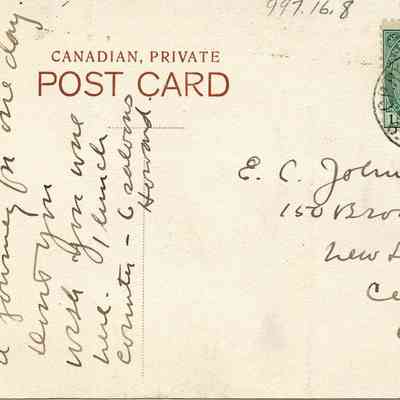 997.16.8
CANADIAN, PRIVATE
POST CARD
a journey for one day.
Dont you
wish you were
here. 1 lunch
counter - 6 saloons
Howard.
E. C. John
150 Bro
New L
Co